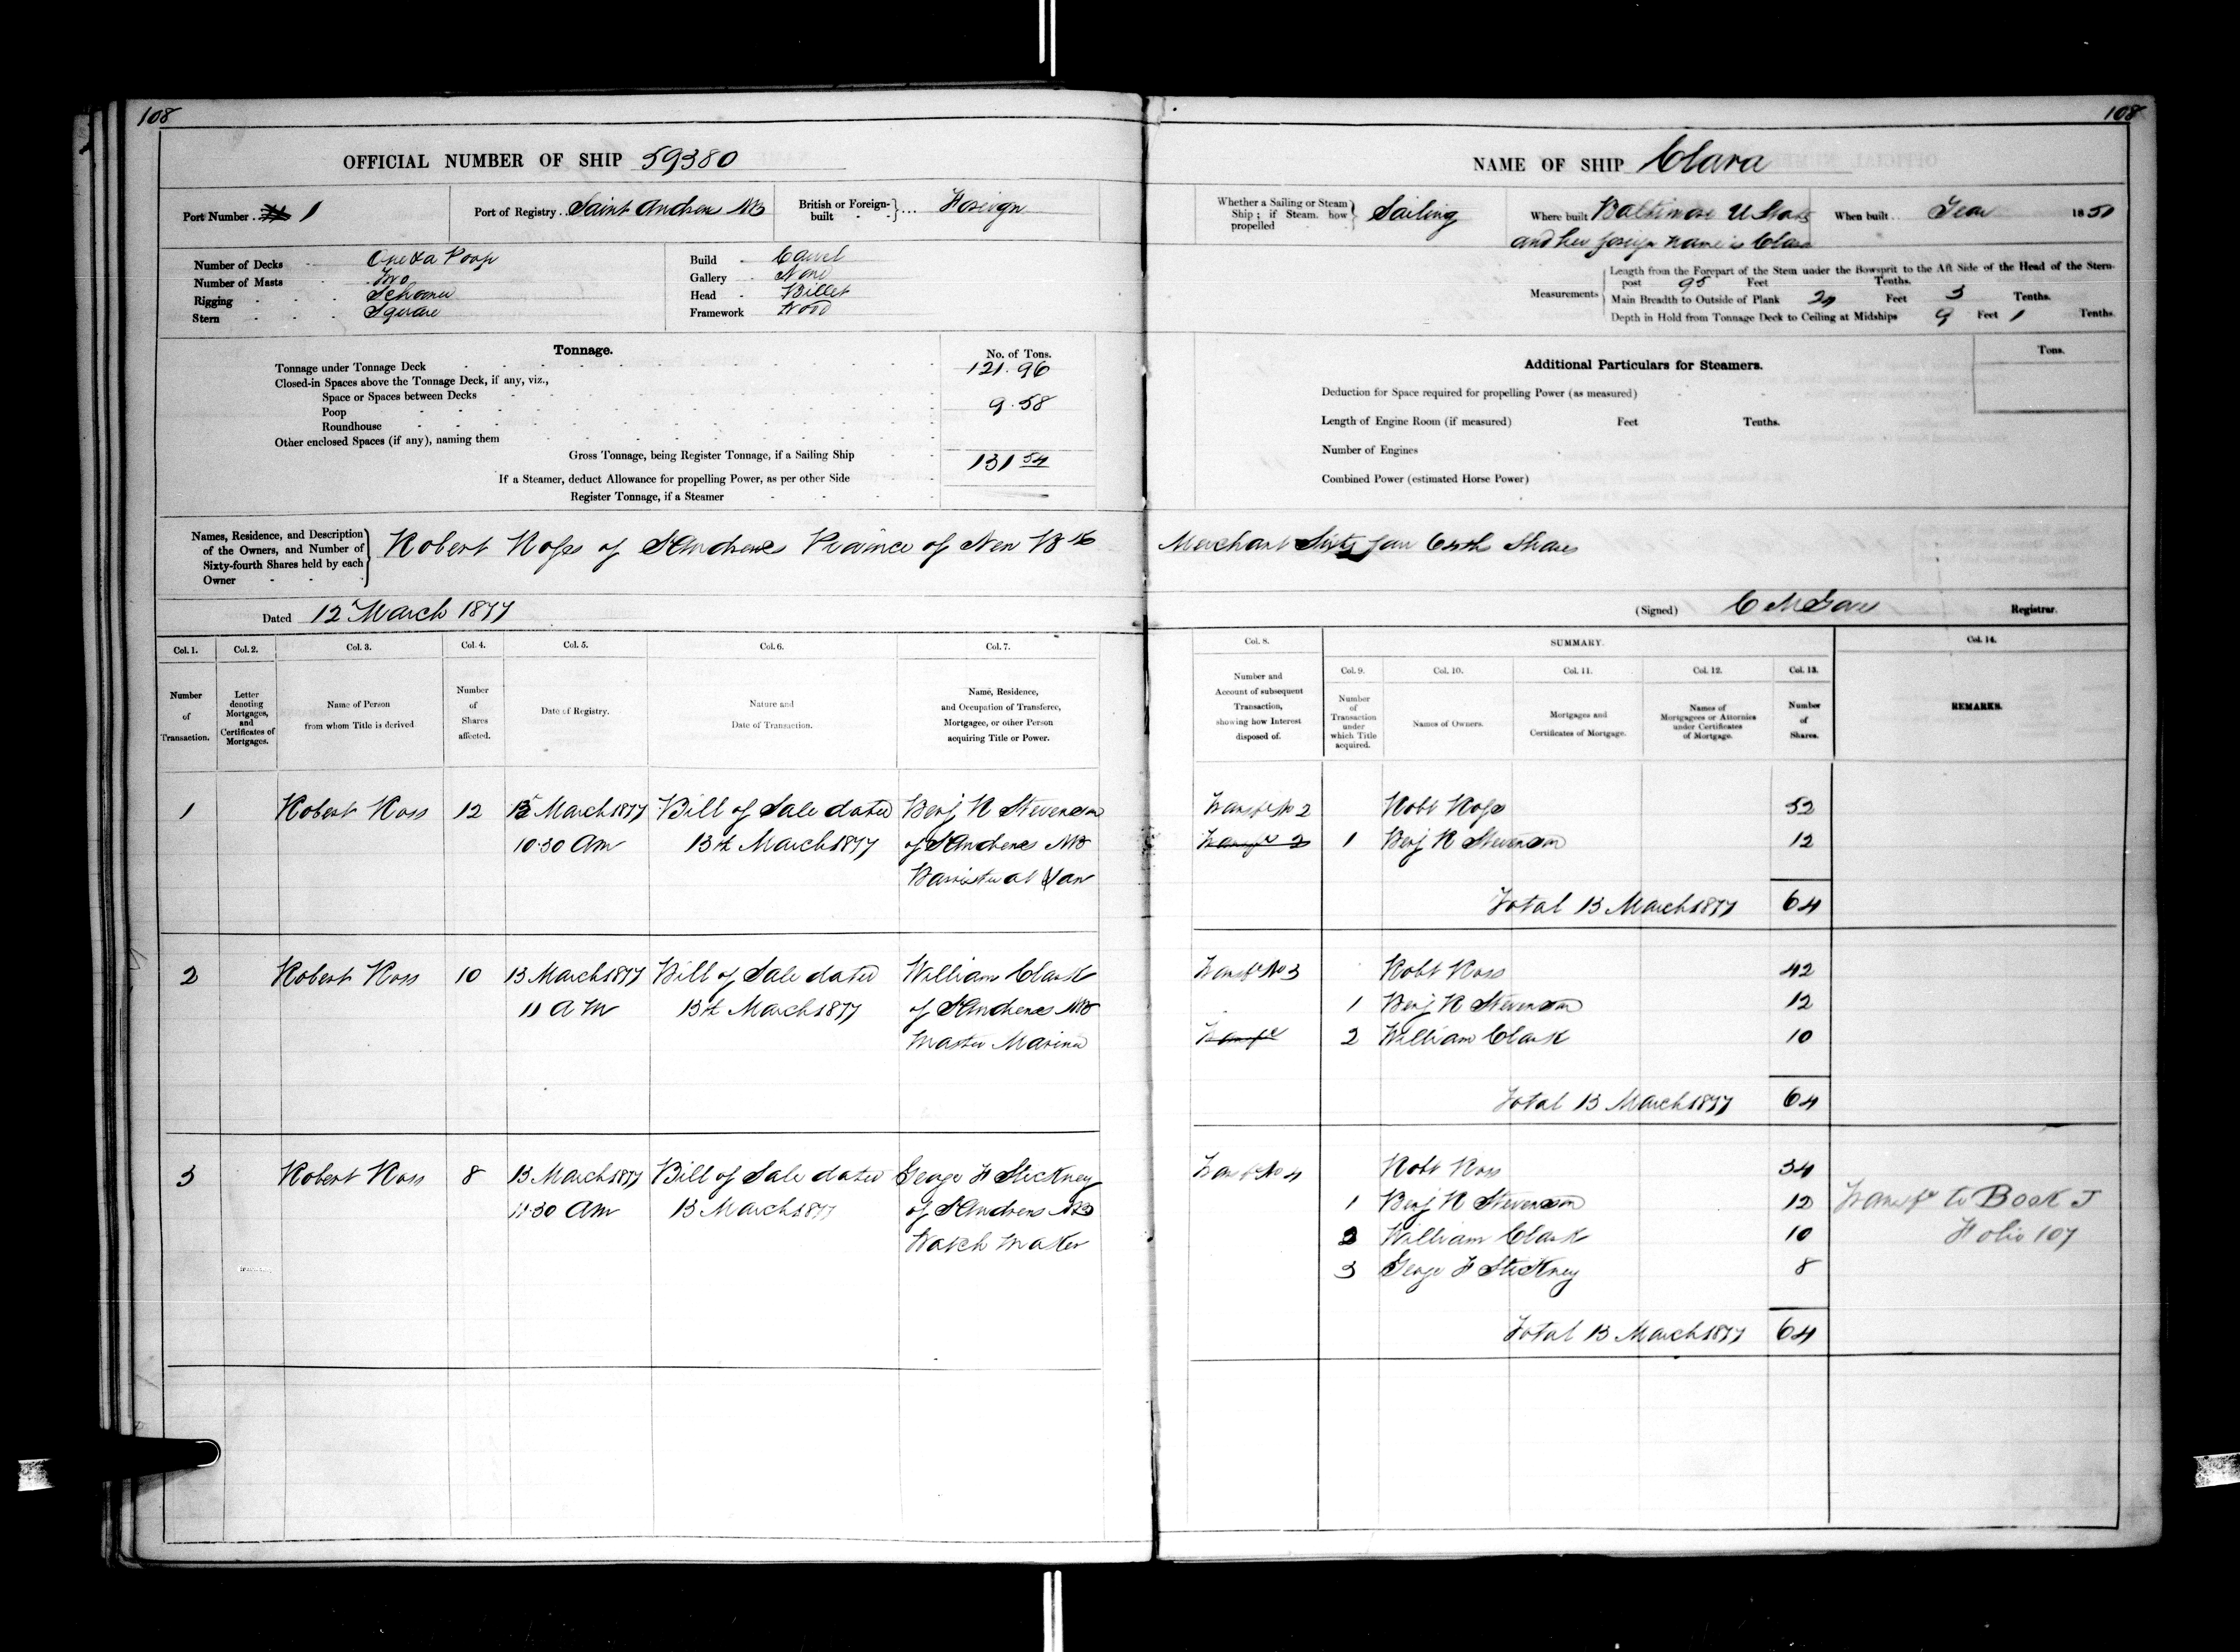 108
OFFICIAL NUMBER OF SHIP 59380
Port Number 1
Port of Registry Saint Andrews NB
British or Foreign-built Foreign
Number of Decks One & a Poop
Number of Masts Two
Rigging Schooner
Stern Square
Build Carvel
Gallery None
Head Billet
Framework Wood
Tonnage.
No. of Tons.
Tonnage under Tonnage Deck 121.96
Closed-in Spaces above the Tonnage Deck, if any, viz.,
Space or Spaces between Decks
Poop 9.58
Roundhouse
Other enclosed Spaces (if any), naming them
Gross Tonnage, being Register Tonnage, if a Sailing Ship 131 54
If a Steamer, deduct Allowance for propelling Power, as per other Side
Register Tonnage, if a Steamer
Names, Residence, and Description of the Owners, and Number of Sixty-fourth Shares held by each Owner
Robert Ross of St Andrews Province of New Bk
Dated 12 March 1877
Col. 1. Col. 2. Col. 3. Col. 4. Col. 5. Col. 6. Col. 7.
Number of Transaction.
Letter denoting Mortgages, and Certificates of Mortgages.
Name of Person from whom Title is derived
Number of Shares affected.
Date of Registry.
Nature and Date of Transaction.
Name, Residence, and Occupation of Transferee, Mortgagee, or other Person acquiring Title or Power.
1 Robert Ross 12 13 March 1877 Bill of Sale dated Benj R Stevenson
10.30 Am 13th March 1877 of St Andrews NB
Barrister at Law
2 Robert Ross 10 13 March 1877 Bill of Sale dated William Clark
11 A M 13th March 1877 of St Andrews NB
Master Mariner
3 Robert Ross 8 13 March 1877 Bill of Sale dated George F Stickney
11.30 Am 13 March 1877 of St Andrews NB
Watch maker
108
NAME OF SHIP Clara
Whether a Sailing or Steam Ship; if Steam, how propelled Sailing
Where built Baltimore U States
and her foreign name is Clara
When built Year 1850
Measurements
Length from the Forepart of the Stem under the Bowsprit to the Aft Side of the Head of the Stern-
post 95 Feet Tenths.
Main Breadth to Outside of Plank 24 Feet 3 Tenths.
Depth in Hold from Tonnage Deck to Ceiling at Midships 9 Feet 1 Tenths.
Additional Particulars for Steamers.
Tons.
Deduction for Space required for propelling Power (as measured)
Length of Engine Room (if measured) Feet Tenths.
Number of Engines
Combined Power (estimated Horse Power)
Merchant Sixty four 64th Shares
(Signed) Registrar.
Col. 8. SUMMARY. Col. 14.
Col. 9. Col. 10. Col. 11. Col. 12. Col. 13.
Number and Account of subsequent Transaction, showing how Interest disposed of.
Number of Transaction under which Title acquired.
Names of Owners.
Mortgages and Certificates of Mortgage.
Names of Mortgagees or Attornies under Certificates of Mortgage.
Number of Shares.
REMARKS.
Transfr No 2 Robt Ross 52
Transfr 2 1 Benj R Stevenson 12
Total 13 March 1877 64
Transfr No 3 Robt Ross 42
1 Benj R Stevenson 12
Transfr 2 William Clark 10
Total 13 March 1877 64
Transfr No 4 Robt Ross 34
1 Benj R Stevenson 12 Transfr to Book J
2 William Clark 10 Folio 107
3 George F Stickney 8
Total 13 March 1877 64